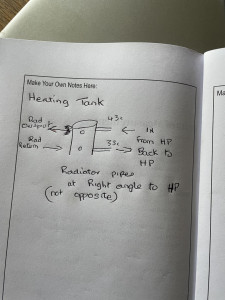 Make Your Own Notes Here:
Ma
Heating Tank
Rad
Output
43°
IN
from HP
Rad
Return
33°
Back to
HP
Radiator pipes
at Right angle to HP
(not opposite)